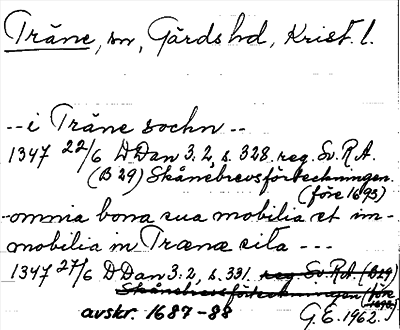 Träne, sn, Gärds hd, Krist. l.
-- i Träne sochn --
1347 22/6 DDan 3:2, s. 328 reg. Sv. R.A.
(B 29) Skånebrevsförteckningen.
(före 1693)
-omnia bona sua mobilia et im-
mobilia in Træne sita ---
1347 27/6 DDan 3:2, s. 331. reg. Sv. R.A. (B 29)
Skånebrevsförteckningen (före 1693)
avskr. 1687-88 G.E. 1962.